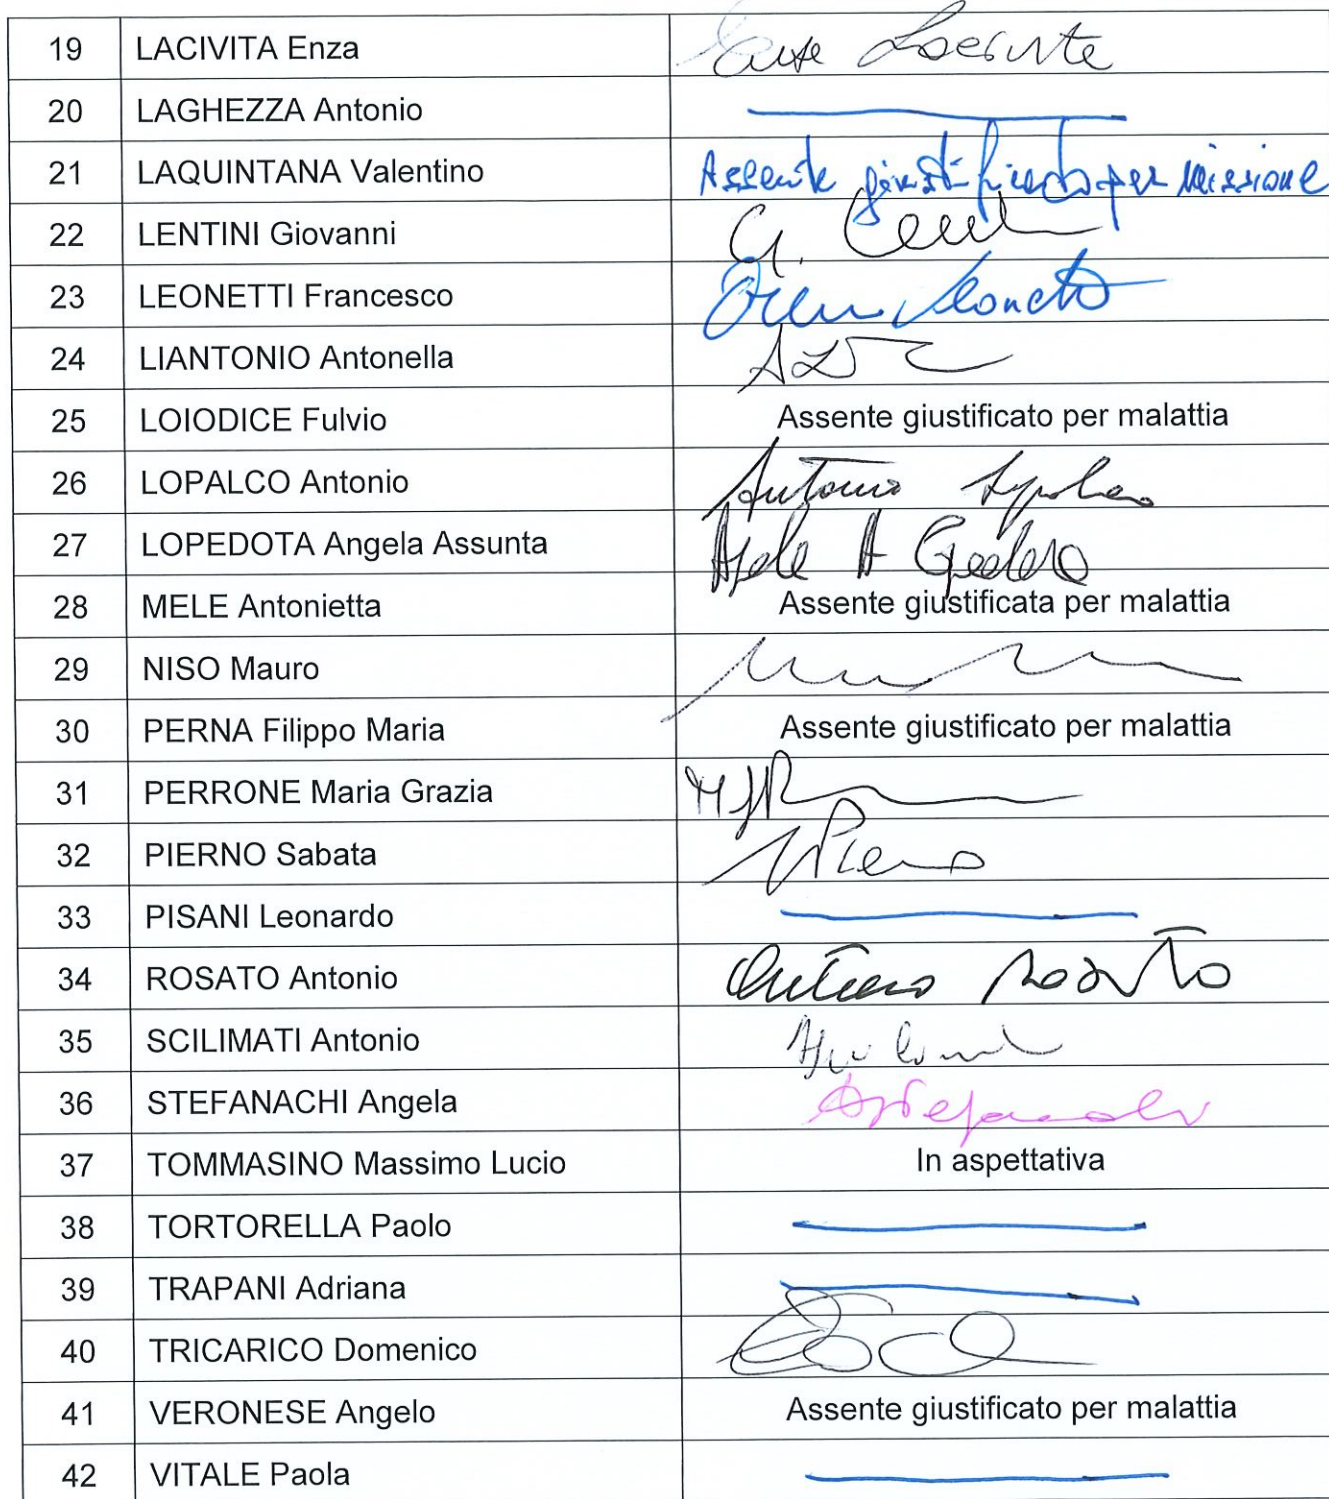 19 LACIVITA Enza
20 LAGHEZZA Antonio
21 LAQUINTANA Valentino Assente giustificato per missione
22 LENTINI Giovanni G.
23 LEONETTI Francesco
24 LIANTONIO Antonella
25 LOIODICE Fulvio Assente giustificato per malattia
26 LOPALCO Antonio Antonio
27 LOPEDOTA Angela Assunta
28 MELE Antonietta Assente giustificata per malattia
29 NISO Mauro
30 PERNA Filippo Maria Assente giustificato per malattia
31 PERRONE Maria Grazia
32 PIERNO Sabata
33 PISANI Leonardo
34 ROSATO Antonio Antonio Rosato
35 SCILIMATI Antonio
36 STEFANACHI Angela
37 TOMMASINO Massimo Lucio In aspettativa
38 TORTORELLA Paolo
39 TRAPANI Adriana
40 TRICARICO Domenico
41 VERONESE Angelo Assente giustificato per malattia
42 VITALE Paola